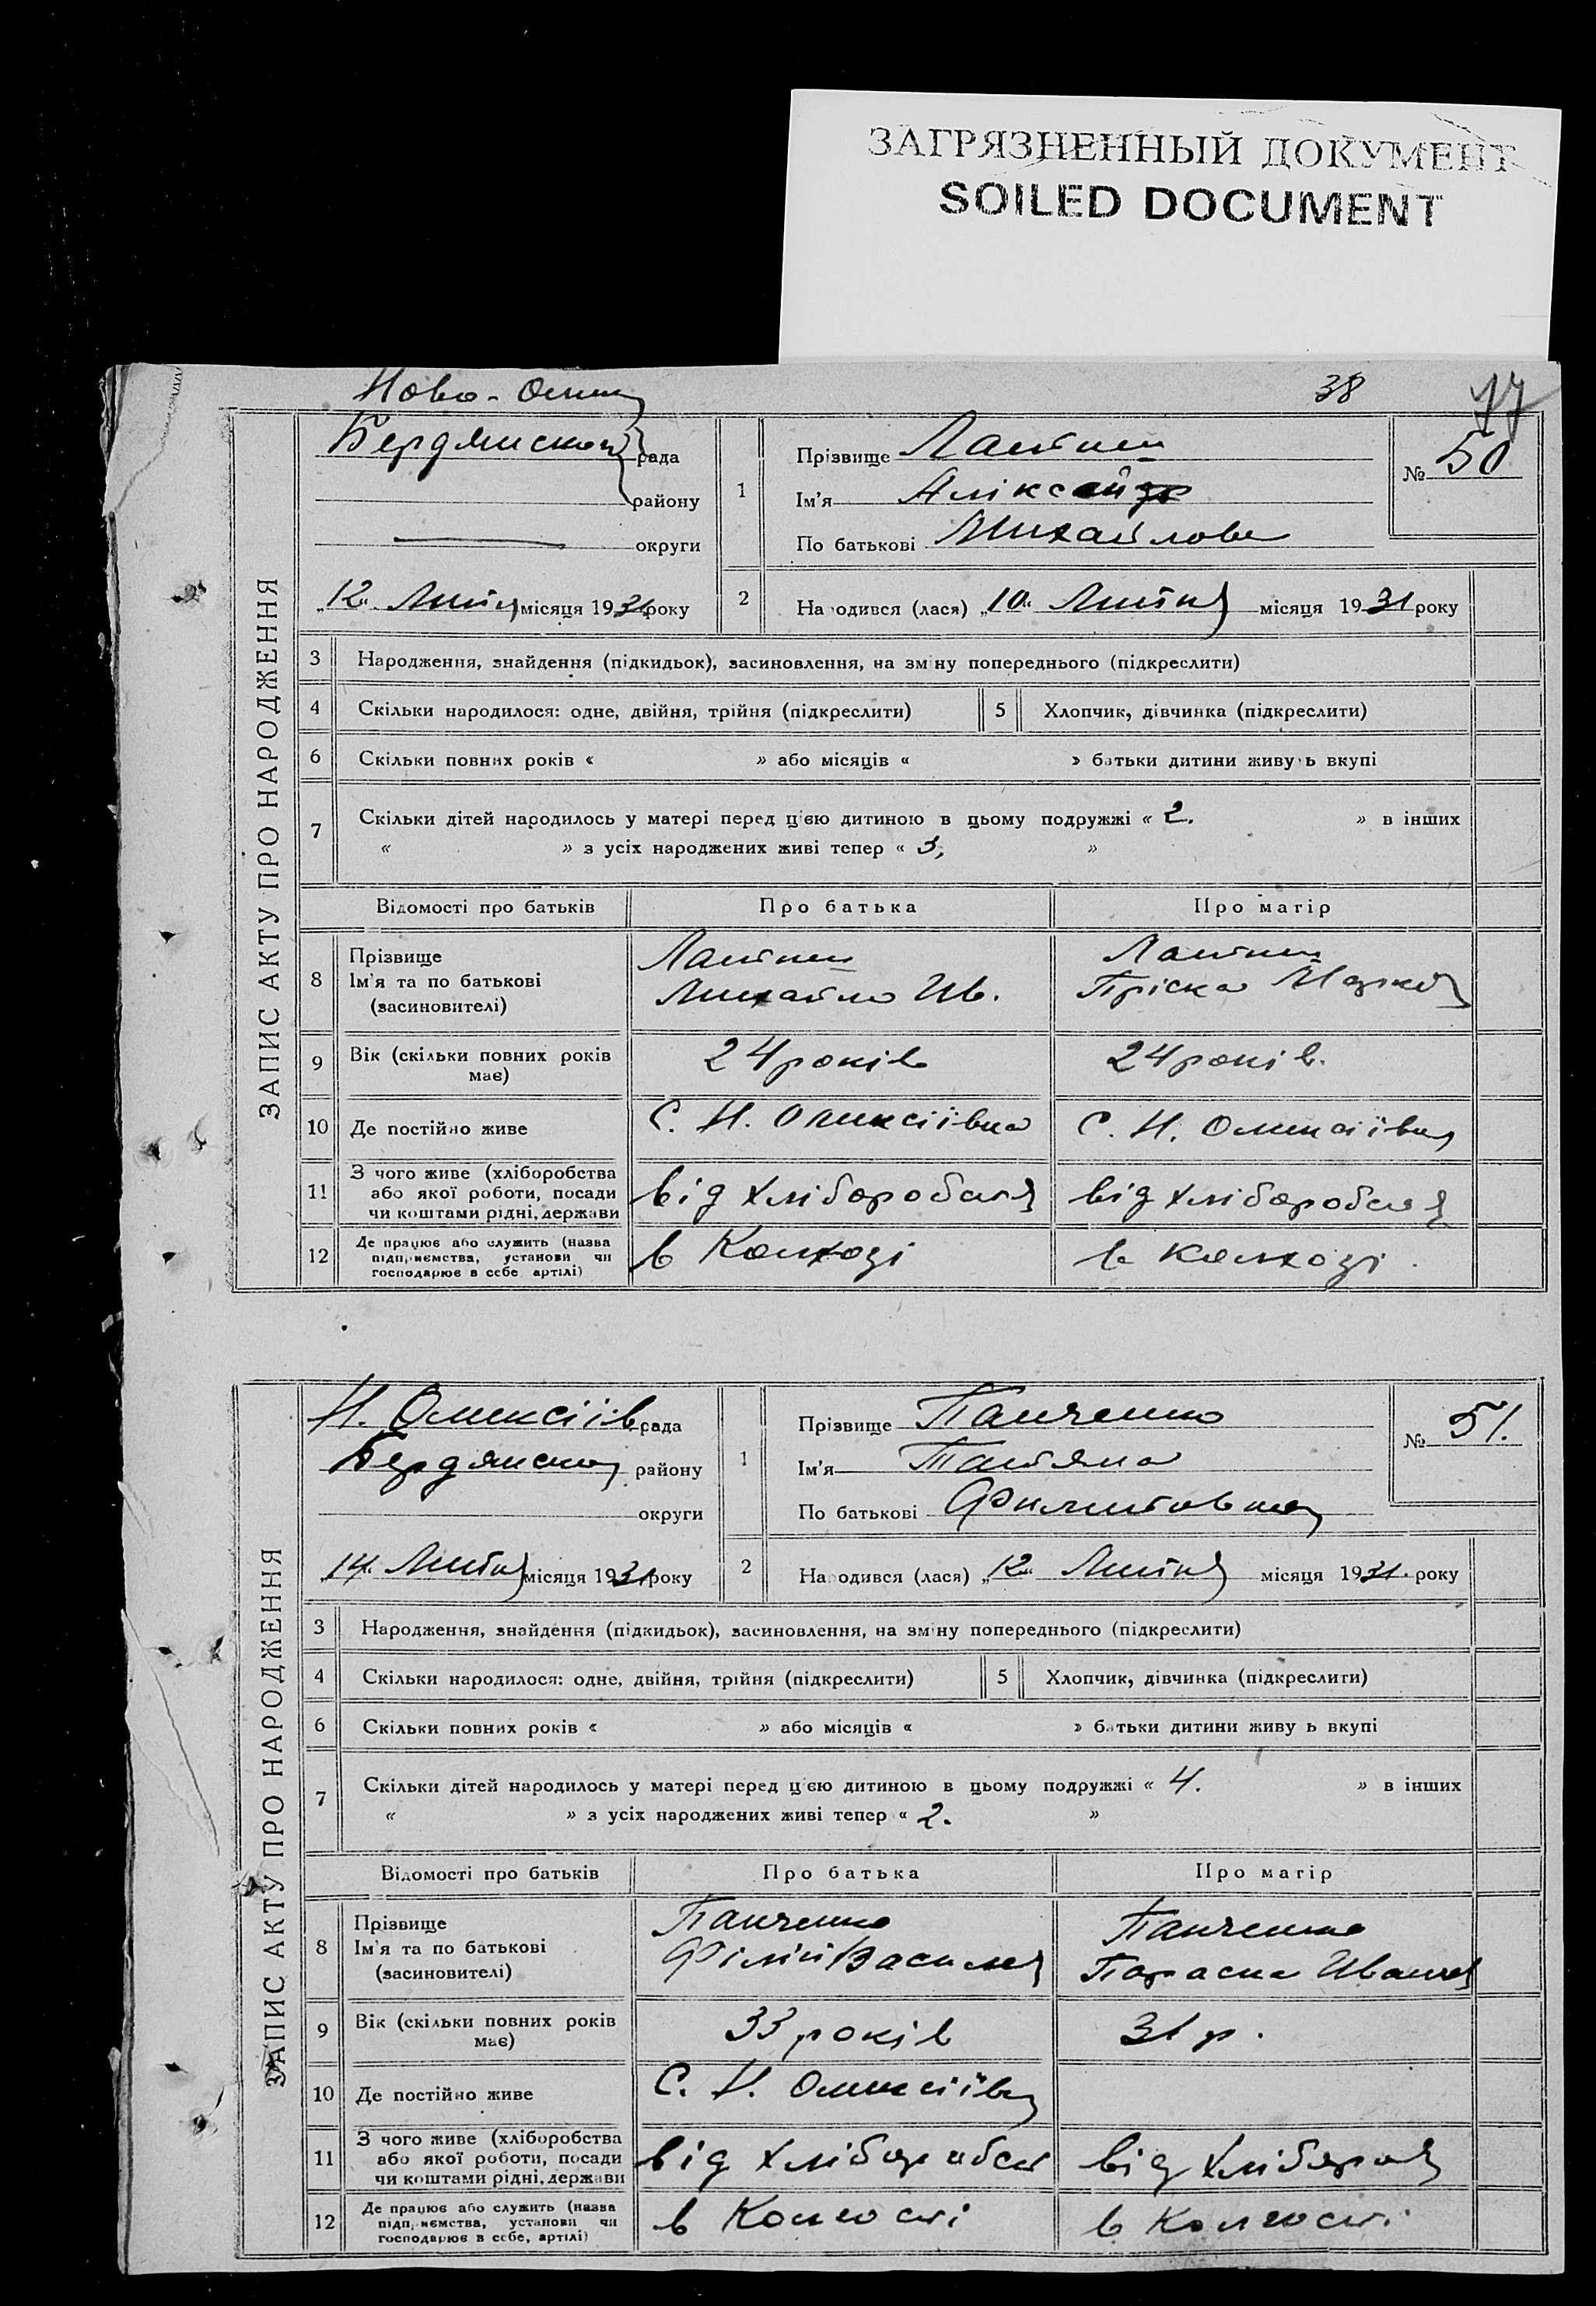 ЗАГРЯЗНЕННЫЙ ДОКУМЕНТ
SOILED DOCUMENT
38
77
ЗАПИС АКТУ ПРО НАРОДЖЕННЯ
Ново-
Бердянской рада
району
округи
"12" Липня місяця 1931 року
1
Прізвище
Ім'я
По батькові Михайлов
№ 50
2
Народився (лася) "10" Липня місяця 1931 року
3 Народження, знайдення (підкидьок), засиновлення, на зміну попереднього (підкреслити)
4 Скільки народилося: одне, двійня, трійня (підкреслити) 5 Хлопчик, дівчинка (підкреслити)
6 Скільки повних років « » або місяців « » батьки дитини живуть вкупі
7 Скільки дітей народилось у матері перед цією дитиною в цьому подружжі « 2. » в інших
« » з усіх народжених живі тепер « 3, »
Відомості про батьків Про батька Про матір
8 Прізвище
Ім'я та по батькові Михайло Ив. Пріска
(засновителі)
9 Вік (скільки повних років має) 24 років 24 років.
10 Де постійно живе С. Н. Олексіївка С. Н. Олексіївка
11 З чого живе (хліборобства або якої роботи, посади чи коштами рідні, держави від хліборобства від хліборобства
12 Де працює або служить (назва підприємства, установи чи господарює в себе, артілі) в Колхозі в колхозі
ЗАПИС АКТУ ПРО НАРОДЖЕННЯ
Н. Олексіїв рада
Бердянско району
округи
"14" Липня місяця 1931 року
1
Прізвище Панченко
Ім'я Татяна
По батькові Филиповна
№ 51.
2
Народився (лася) "12" Липня місяця 1931. року
3 Народження, знайдення (підкидьок), засиновлення, на зміну попереднього (підкреслити)
4 Скільки народилося: одне, двійня, трійня (підкреслити) 5 Хлопчик, дівчинка (підкреслити)
6 Скільки повних років « » або місяців « » батьки дитини живуть вкупі
7 Скільки дітей народилось у матері перед цією дитиною в цьому подружжі « 4. » в інших
« » з усіх народжених живі тепер « 2. »
Відомості про батьків Про батька Про матір
8 Прізвище Панченко Панченко
Ім'я та по батькові Філип Василь Параска Иванов
(засновителі)
9 Вік (скільки повних років має) 33 років 31 р.
10 Де постійно живе С. Н. Олексіївка
11 З чого живе (хліборобства або якої роботи, посади чи коштами рідні, держави від хліборобст від хлібороб
12 Де працює або служить (назва підприємства, установи чи господарює в себе, артілі) в Колгоспі в Колгоспі